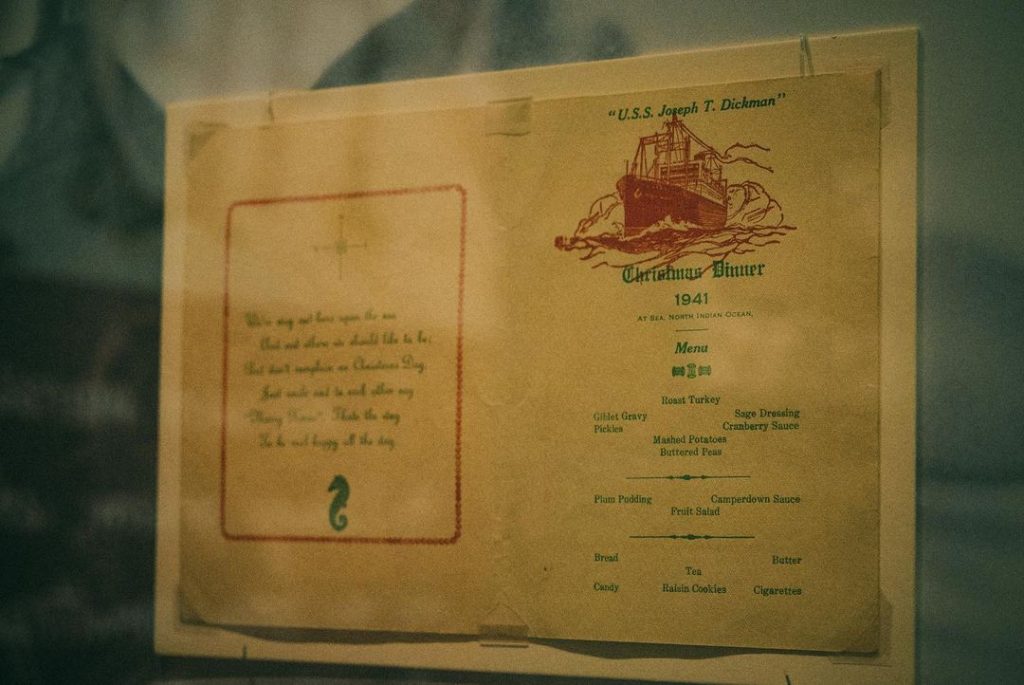 We're way out here upon the sea
And not where we should like to be;
But don't complain on Christmas Day
Just smile and to each other say
"Merry Xmas". Thats the way
To be real happy all the day.
"U.S.S. Joseph T. Dickman"
Christmas Dinner
1941
AT SEA, NORTH INDIAN OCEAN,
Menu
Roast Turkey
Giblet Gravy Sage Dressing
Pickles Cranberry Sauce
Mashed Potatoes
Buttered Peas
Plum Pudding Camperdown Sauce
Fruit Salad
Bread Butter
Tea
Candy Raisin Cookies Cigarettes